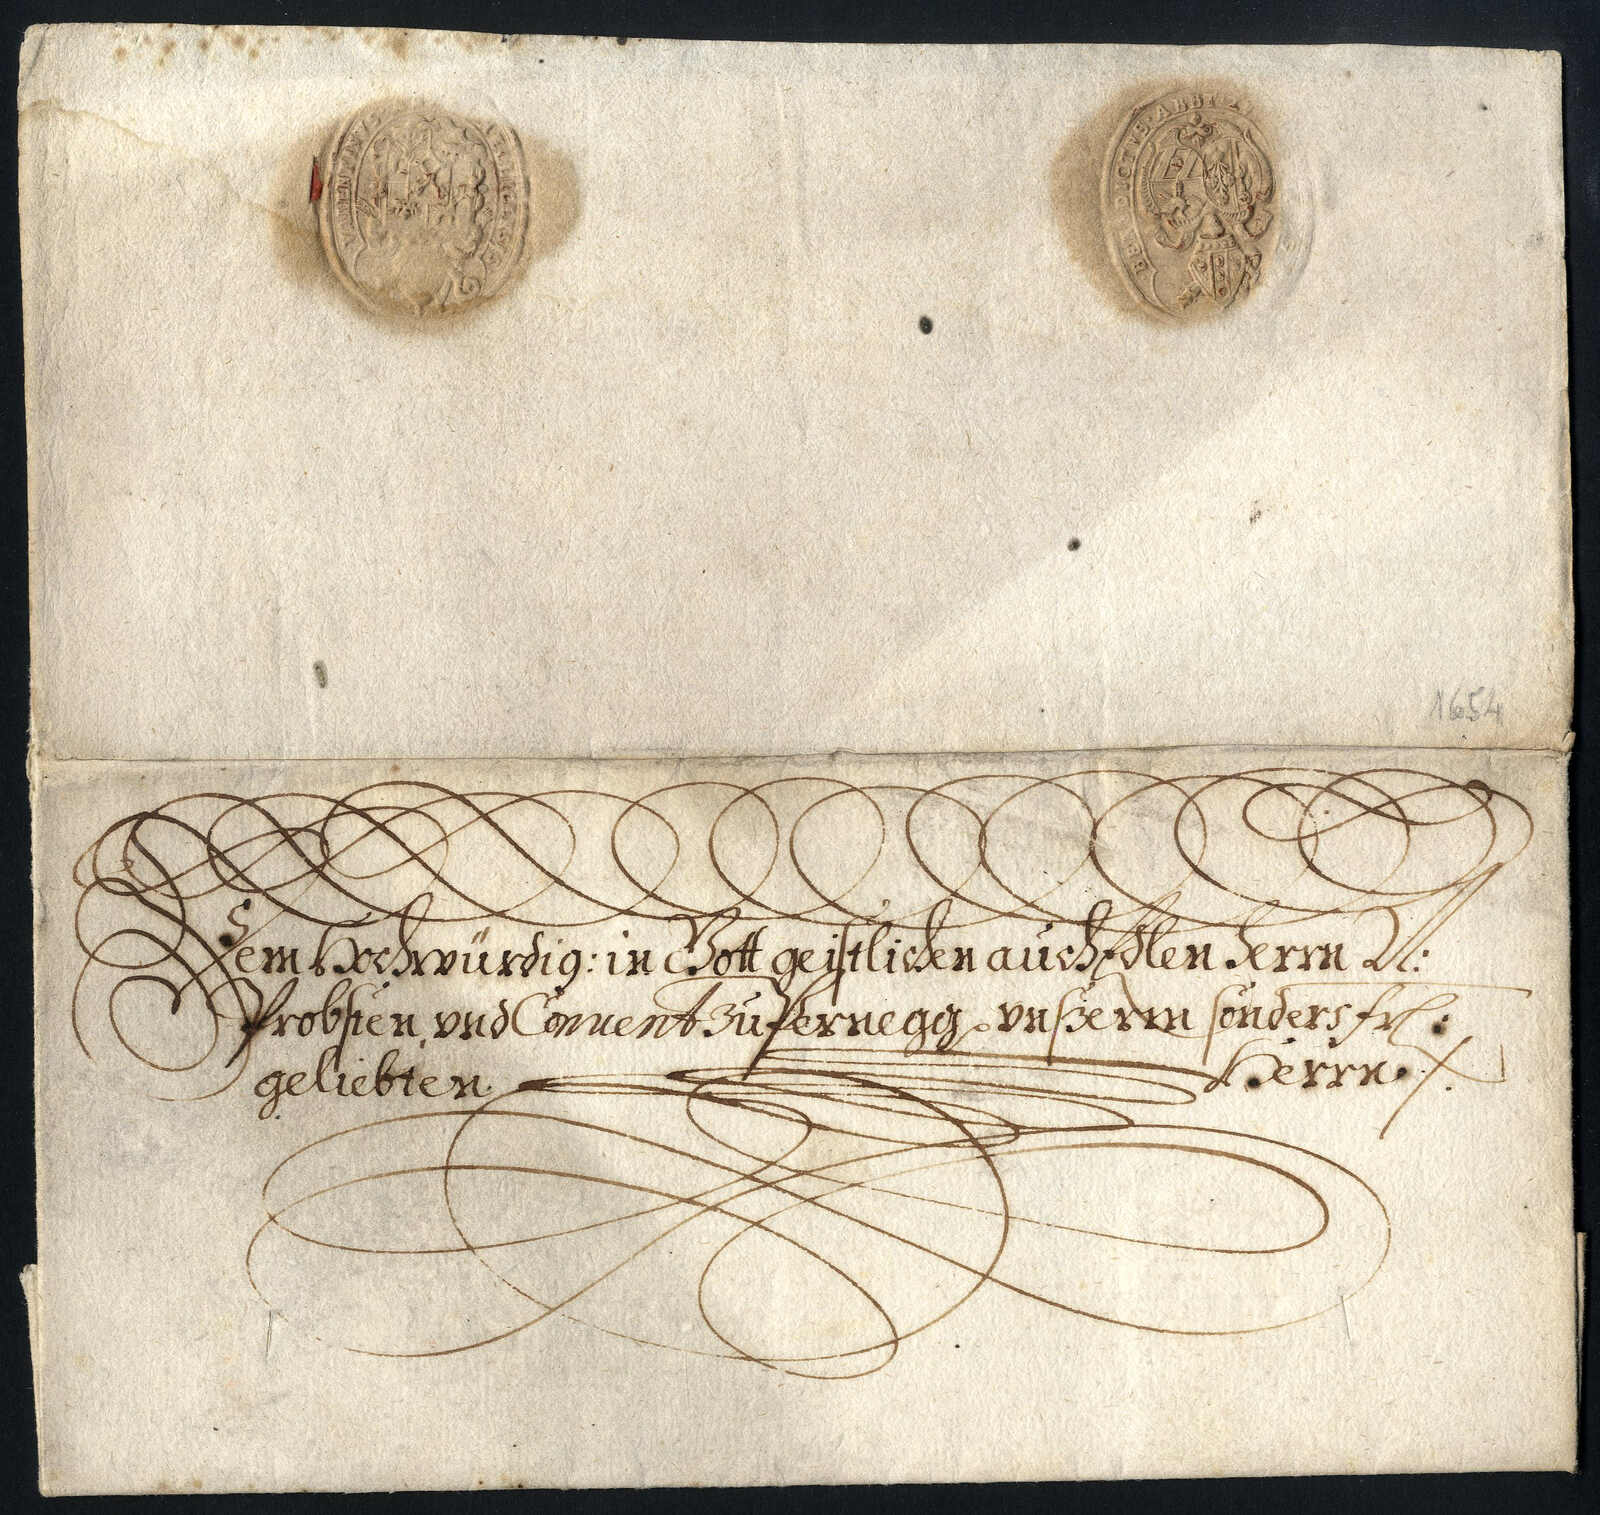 BENEDICTVS · ABBT
1654
Dem Hochwürdig: in Gott geistlichen auch Edlen Herrn N:
Probsten, vnd Conuent zu Pernegg, vnßerm sonders frl:
geliebten Herrn